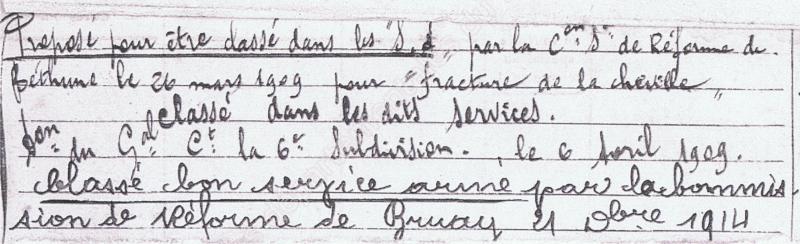 Proposé pour être classé dans les "S. A" par la Con Sle de Réforme de
Béthune le 26 mars 1909 pour "fracture de la cheville"
classé dans les dits services.
Son du Gal Ct la 6e Subdivision. le 6 Avril 1909.
Classé bon service armé par la commis
sion de Réforme de Bruay 21 Dbre 1914